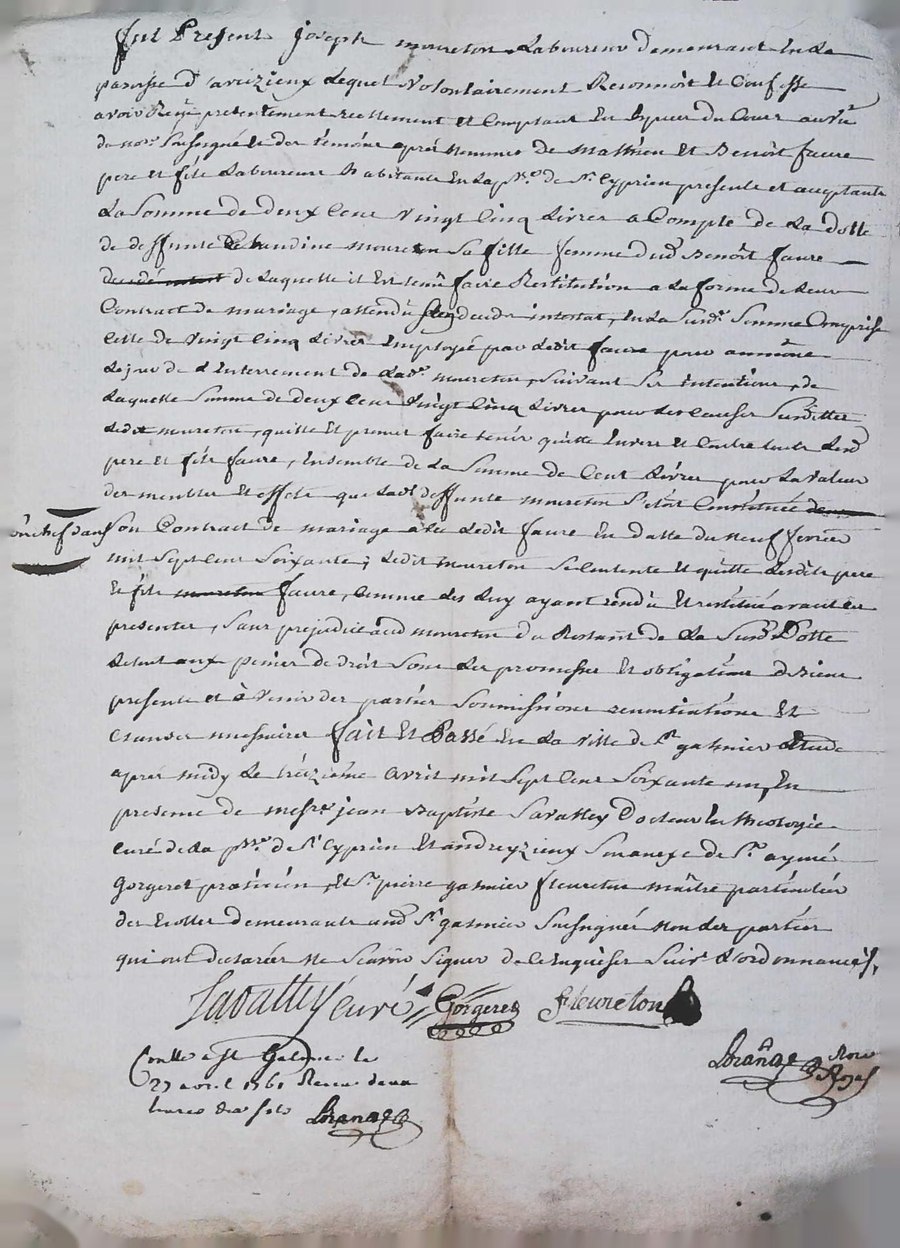 fut Present joseph moureton Laboureur demeurant En La
paroisse d'aveizieux Lequel Volontairement Reconnoit Et Confesse
avoir Reçu presentement reellement et Comptant En Espèces du Cours au vû
du no.re Soussigné et des témoins après Nommés de Mathieu Et Benoit faure
pere et fils Laboureurs habitants En La p.sse de S.t Cyprien presents et acceptants
La Somme de deux Cent Vingt Cinq Livres a Compte de La dotte
de deffunte Claudine moureton Sa fille femme dud. Benoît faure
de Laquelle il Est tenu faire Restitution a La forme de Leur
Contract de mariage, attendu Son decidé intestat, En La Susd. Somme Comprise
Celle de Vingt Cinq Livres Employée par Ledit faure pour aumône
Le jour de L'Enterrement de Lad. moureton, Suivant Ses intentions, de
Laquelle Somme de deux Cent Vingt Cinq Livres pour Les Causes Susdittes
Ledit moureton, quitte Et promet faire tenir quitte Envers Et Contre touts Lesd.
pere Et fils faure, Ensemble de La Somme de Cent Livres pour La Valeur
des meubles Et effets que Lad. deffunte moureton S'étoit Constituée
en chef dans Son Contract de mariage avec Ledit faure En datte du neuf fevrier
mil Sept Cent Soixante; Ledit moureton Se Contente Et quitte Lesdits pere
Et fils moureton faure, Comme Les Luy ayant rendu Et restitué avant Les
presentes, Sans prejudice aud. moureton du Restant de La Susd. Dotte
Le tout aux peines de droit Sous Les promesses Et obligations de biens
presents et à Venir des parties Soumissions renontiations Et
Clauses necessaires fait Et Passé En La Ville de S.t galmier Etude
après midy Le treizième avril mil Sept Cent Soixante un, En
presence de mess.re jean Baptiste Lavalley Docteur En theologie
curé de La p.sse de S.t Cyprien Et andrezieux Son annexe de S.r aymé
Gorgeret praticien, Et S.r pierre galmier fleureton maître particulier
des Ecolles demeurants aud. S.t galmier Soussignés Non Les parties
qui ont déclarées Ne Scavoir Signer de ce Enquises Suiv.t L'ordonnance,
Lavalley curé Gorgeret fleureton
Lorange Nore Royal
Con.lle a St Galmier le
27 avril 1761 Recu
Lorange